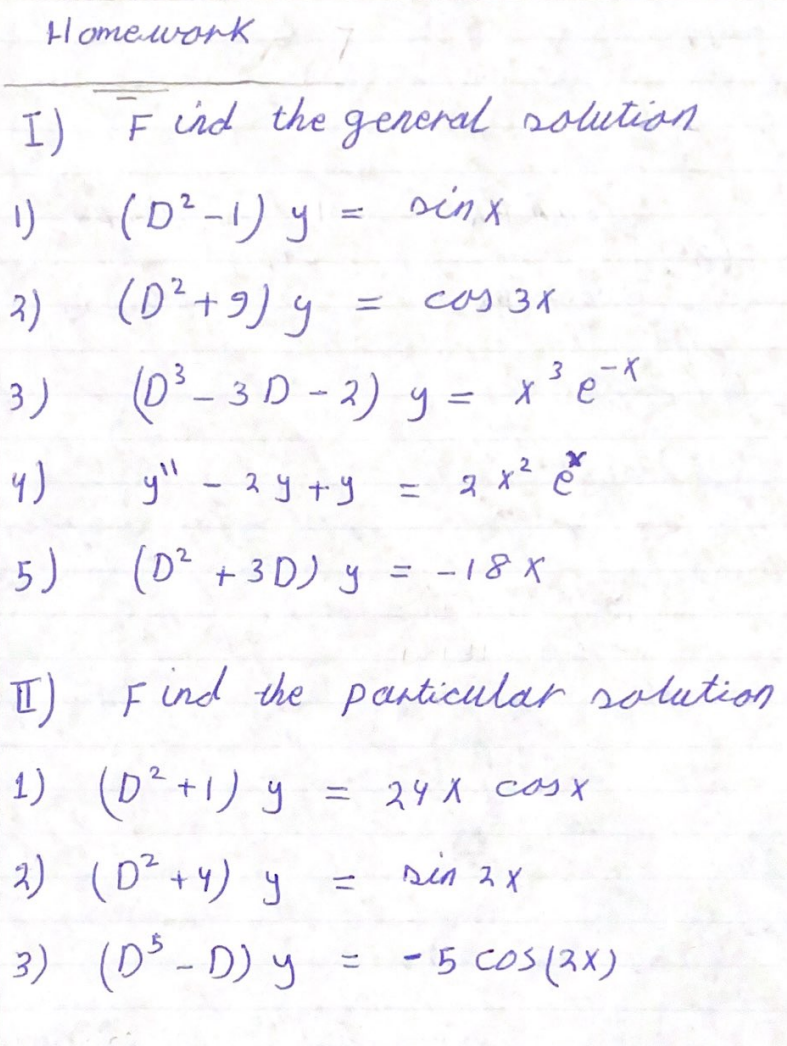 Homework
I) Find the general solution
1) (D² - 1) y = sin x
2) (D² + 9) y = cos 3x
3) (D³ - 3D - 2) y = x³ e⁻ˣ
4) y'' - 2y + y = 2x² eˣ
5) (D² + 3D) y = -18x
II) Find the particular solution
1) (D² + 1) y = 24x cos x
2) (D² + 4) y = sin 2x
3) (D⁵ - D) y = -5 cos(2x)